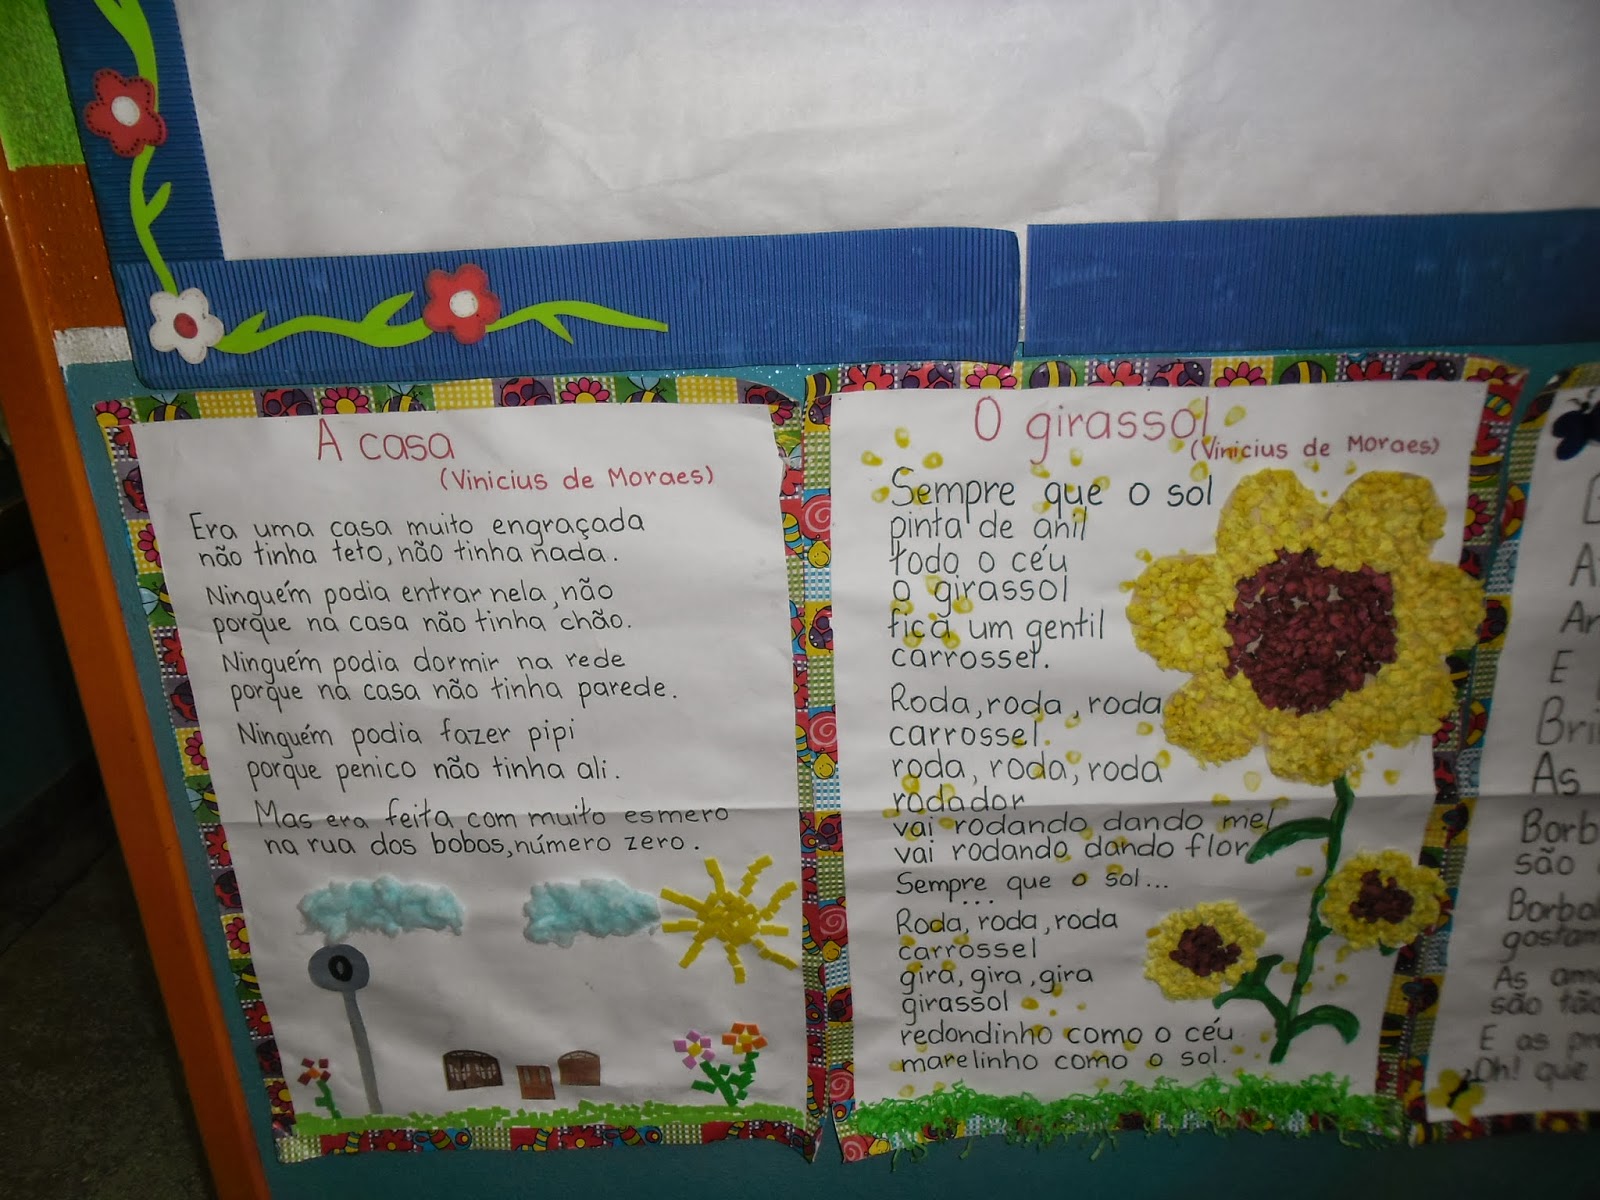 A casa
(Vinicius de Moraes)
Era uma casa muito engraçada
não tinha teto, não tinha nada.
Ninguém podia entrar nela, não
porque na casa não tinha chão.
Ninguém podia dormir na rede
porque na casa não tinha parede.
Ninguém podia fazer pipi
porque penico não tinha ali.
Mas era feita com muito esmero
na rua dos bobos, número zero.
0
O girassol
(Vinicius de Moraes)
Sempre que o sol
pinta de anil
todo o céu
o girassol
fica um gentil
carrossel.
Roda, roda, roda
carrossel.
roda, roda, roda
rodador
vai rodando dando mel
vai rodando dando flor
Sempre que o sol...
...
Roda, roda, roda
carrossel
gira, gira, gira
girassol
redondinho como o céu
marelinho como o sol.
A
E
As
são
gostam
As
são
E as
Oh! que